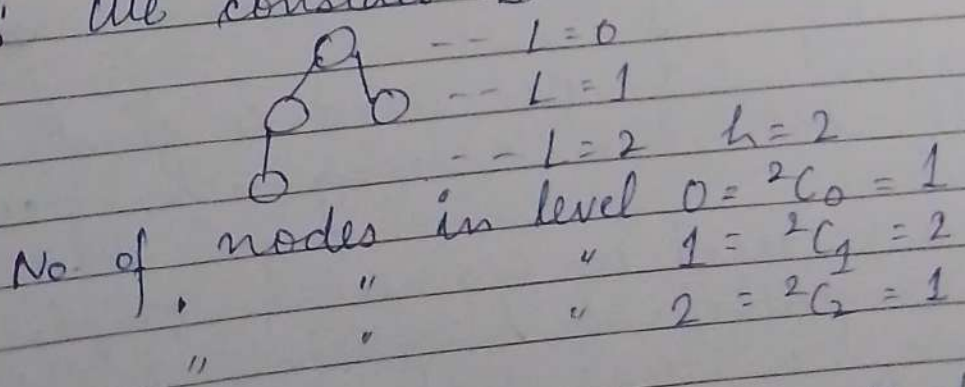 are
-- L = 0
-- L = 1
-- L = 2 h = 2
No. of nodes in level 0 = ²C₀ = 1
" " " 1 = ²C₁ = 2
" " " 2 = ²C₂ = 1